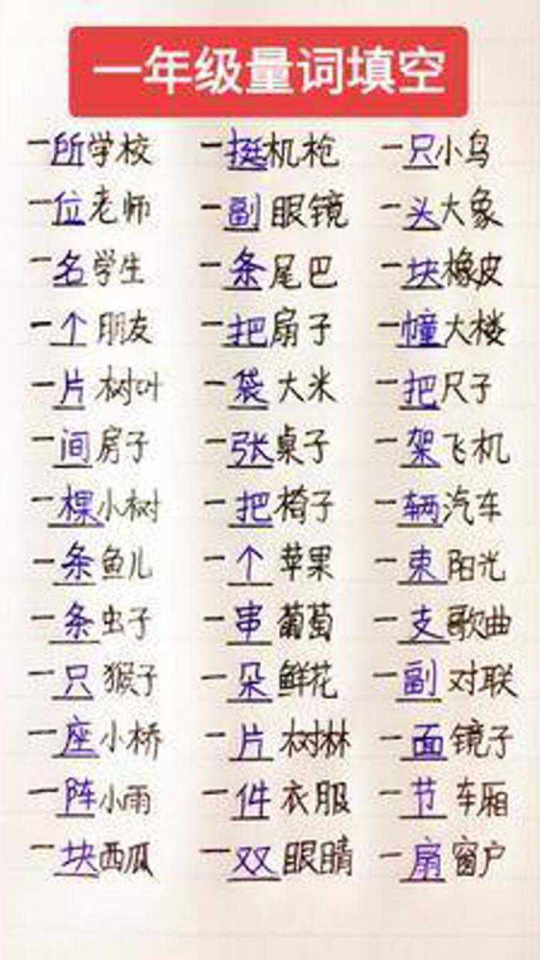 一年级量词填空
一所学校 一挺机枪 一只小鸟
一位老师 一副眼镜 一头大象
一名学生 一条尾巴 一块橡皮
一个朋友 一把扇子 一幢大楼
一片树叶 一袋大米 一把尺子
一间房子 一张桌子 一架飞机
一棵小树 一把椅子 一辆汽车
一条鱼儿 一个苹果 一束阳光
一条虫子 一串葡萄 一支歌曲
一只猴子 一朵鲜花 一副对联
一座小桥 一片树林 一面镜子
一阵小雨 一件衣服 一节车厢
一块西瓜 一双眼睛 一扇窗户